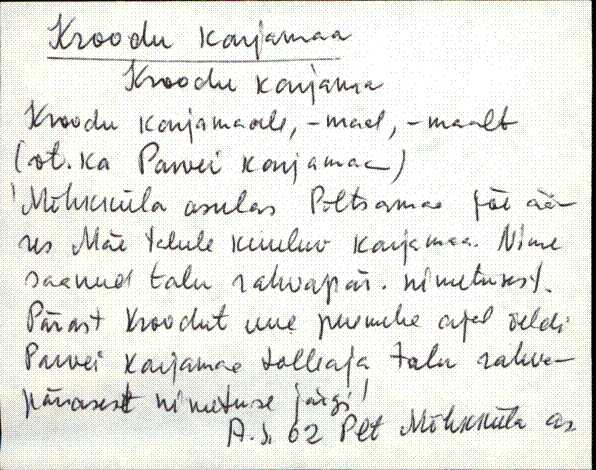 Kroodu karjamaa
Kroodu karjama
Kroodu karjamaale, -maal, -maalt
(vt. ka Parvei karjamaa)
'Mõhkküla asulas Põltsamaa jõe ää-
res Mäe talule kuuluv karjamaa. Nime
saanud talu rahvapär. nimetusest.
Pärast Kroodut uue peremehe ajal öeldi
Parvei karjamaa tolleaja talu rahva-
pärasest nimetuse järgi!
A.S. 62 Plt Mõhkküla as